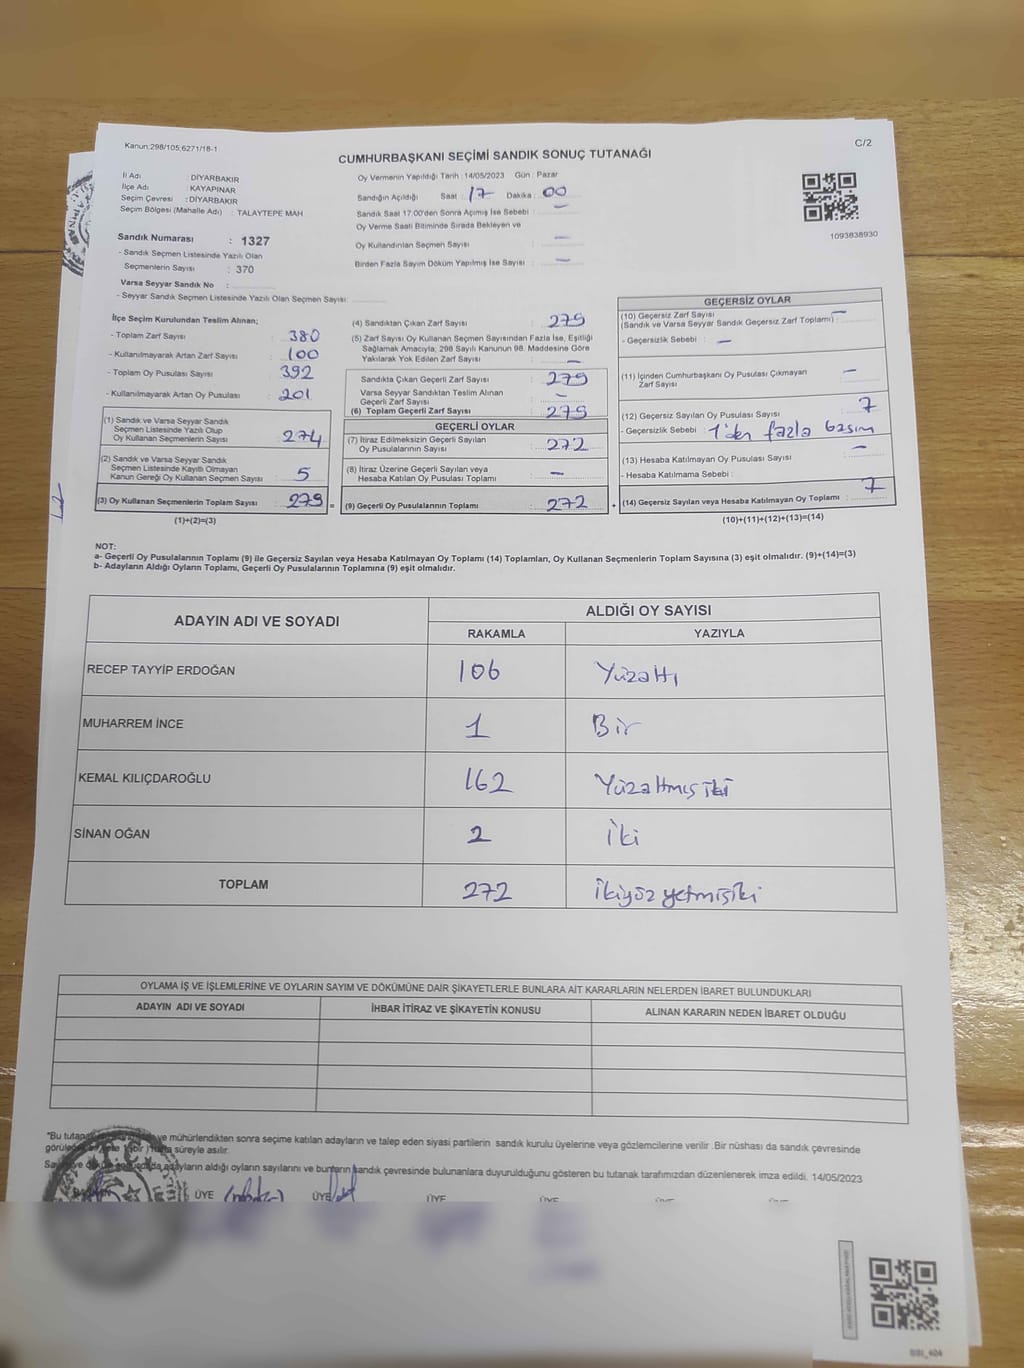 Kanun:298/105,6271/18-1
C/2
CUMHURBAŞKANI SEÇİMİ SANDIK SONUÇ TUTANAĞI
İl Adı : DİYARBAKIR
İlçe Adı : KAYAPINAR
Seçim Çevresi : DİYARBAKIR
Seçim Bölgesi (Mahalle Adı) : TALAYTEPE MAH.
Sandık Numarası : 1327
- Sandık Seçmen Listesinde Yazılı Olan
Seçmenlerin Sayısı : 370
Varsa Seyyar Sandık No :
- Seyyar Sandık Seçmen Listesinde Yazılı Olan Seçmen Sayısı:
Oy Vermenin Yapıldığı Tarih :14/05/2023 Gün : Pazar
Sandığın Açıldığı Saat : 17 Dakika : 00
Sandık Saat 17:00'den Sonra Açımış İse Sebebi : –
Oy Verme Saati Bitiminde Sırada Bekleyen ve
Oy Kullandırılan Seçmen Sayısı : –
Birden Fazla Sayım Döküm Yapılmış İse Sayısı : –
1093838930
İlçe Seçim Kurulundan Teslim Alınan;
- Toplam Zarf Sayısı : 380
- Kullanılmayarak Artan Zarf Sayısı : 100
- Toplam Oy Pusulası Sayısı : 392
- Kullanılmayarak Artan Oy Pusulası : 201
(1) Sandık ve Varsa Seyyar Sandık
Seçmen Listesinde Yazılı Olup
Oy Kullanan Seçmenlerin Sayısı : 274
(2) Sandık ve Varsa Seyyar Sandık
Seçmen Listesinde Kayıtlı Olmayan
Kanun Gereği Oy Kullanan Seçmen Sayısı : 5
(3) Oy Kullanan Seçmenlerin Toplam Sayısı : 279 =
(1)+(2)=(3)
(4) Sandıktan Çıkan Zarf Sayısı : 279
(5) Zarf Sayısı Oy Kullanan Seçmen Sayısından Fazla İse, Eşitliği
Sağlamak Amacıyla, 298 Sayılı Kanunun 98. Maddesine Göre
Yakılarak Yok Edilen Zarf Sayısı : –
Sandıkta Çıkan Geçerli Zarf Sayısı : 279
Varsa Seyyar Sandıktan Teslim Alınan
Geçerli Zarf Sayısı : –
(6) Toplam Geçerli Zarf Sayısı : 279
GEÇERLİ OYLAR
(7) İtiraz Edilmeksizin Geçerli Sayılan
Oy Pusulalarının Sayısı : 272
(8) İtiraz Üzerine Geçerli Sayılan veya
Hesaba Katılan Oy Pusulası Toplamı : –
(9) Geçerli Oy Pusulalarının Toplamı : 272 +
GEÇERSİZ OYLAR
(10) Geçersiz Zarf Sayısı
(Sandık ve Varsa Seyyar Sandık Geçersiz Zarf Toplamı) : –
- Geçersizlik Sebebi : –
(11) İçinden Cumhurbaşkanı Oy Pusulası Çıkmayan
Zarf Sayısı –
(12) Geçersiz Sayılan Oy Pusulası Sayısı : 7
- Geçersizlik Sebebi : 1'den fazla basım
(13) Hesaba Katılmayan Oy Pusulası Sayısı : –
- Hesaba Katılmama Sebebi :
(14) Geçersiz Sayılan veya Hesaba Katılmayan Oy Toplamı : 7
(10)+(11)+(12)+(13)=(14)
NOT:
a- Geçerli Oy Pusulalarının Toplamı (9) ile Geçersiz Sayılan veya Hesaba Katılmayan Oy Toplamı (14) Toplamları, Oy Kullanan Seçmenlerin Toplam Sayısına (3) eşit olmalıdır. (9)+(14)=(3)
b- Adayların Aldığı Oyların Toplamı, Geçerli Oy Pusulalarının Toplamına (9) eşit olmalıdır.
ADAYIN ADI VE SOYADI
ALDIĞI OY SAYISI
RAKAMLA YAZIYLA
RECEP TAYYİP ERDOĞAN 106 Yüzaltı
MUHARREM İNCE 1 Bir
KEMAL KILIÇDAROĞLU 162 Yüzaltmış iki
SİNAN OĞAN 2 İki
TOPLAM 272 İkiyüz yetmişiki
OYLAMA İŞ VE İŞLEMLERİNE VE OYLARIN SAYIM VE DÖKÜMÜNE DAİR ŞİKAYETLERLE BUNLARA AİT KARARLARIN NELERDEN İBARET BULUNDUKLARI
ADAYIN ADI VE SOYADI İHBAR İTİRAZ VE ŞİKAYETİN KONUSU ALINAN KARARIN NEDEN İBARET OLDUĞU
"Bu tutanak ve mühürlendikten sonra seçime katılan adayların ve talep eden siyasi partilerin sandık kurulu üyelerine veya gözlemcilerine verilir .Bir nüshası da sandık çevresinde
süreyle asılır.
adayların aldığı oyların sayılarını ve bunların sandık çevresinde bulunanlara duyurulduğunu gösteren bu tutanak tarafımızdan düzenlenerek imza edildi. 14/05/2023
ÜYE ÜYE ÜYE ÜYE ÜYE ÜYE